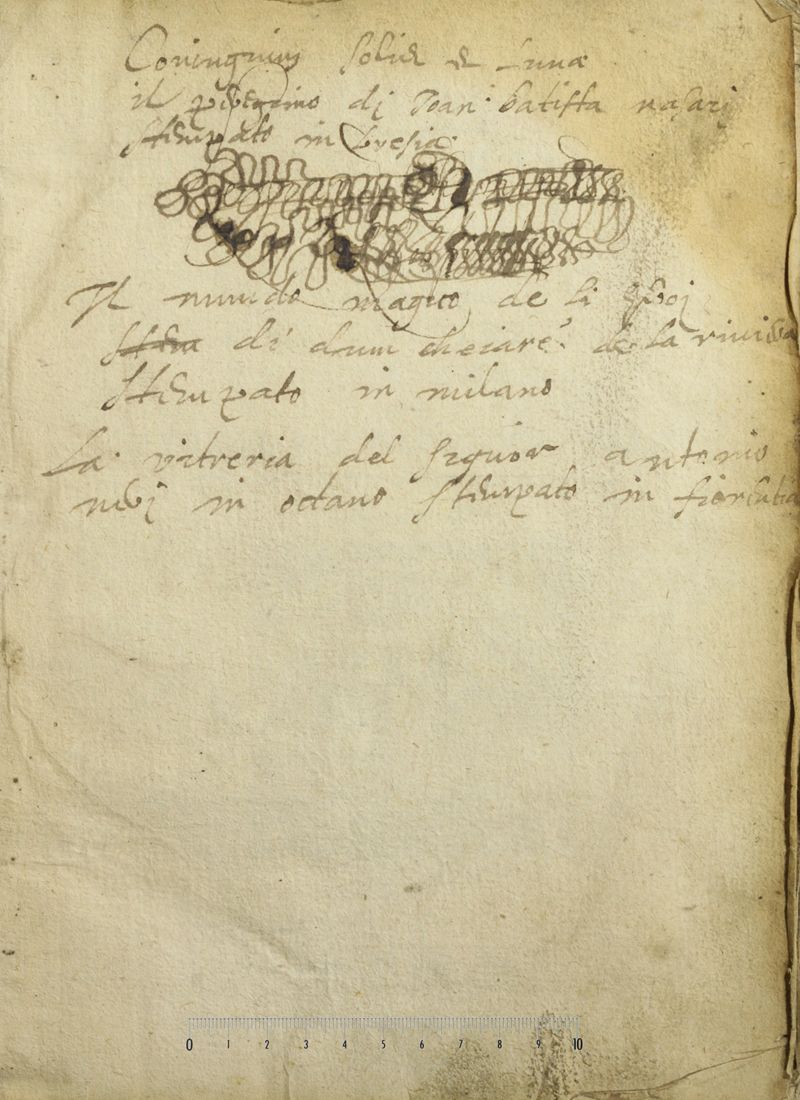 Coniugium solis et Lunæ
il peregrino di Joan: batista nasari
stempato in bresia
Il mundo magico de li Eroi
di dum chesare de la riviera
stempato in milano
La vitreria del signor antonio
neri in octavo stempato in fiorentia
0 1 2 3 4 5 6 7 8 9 10